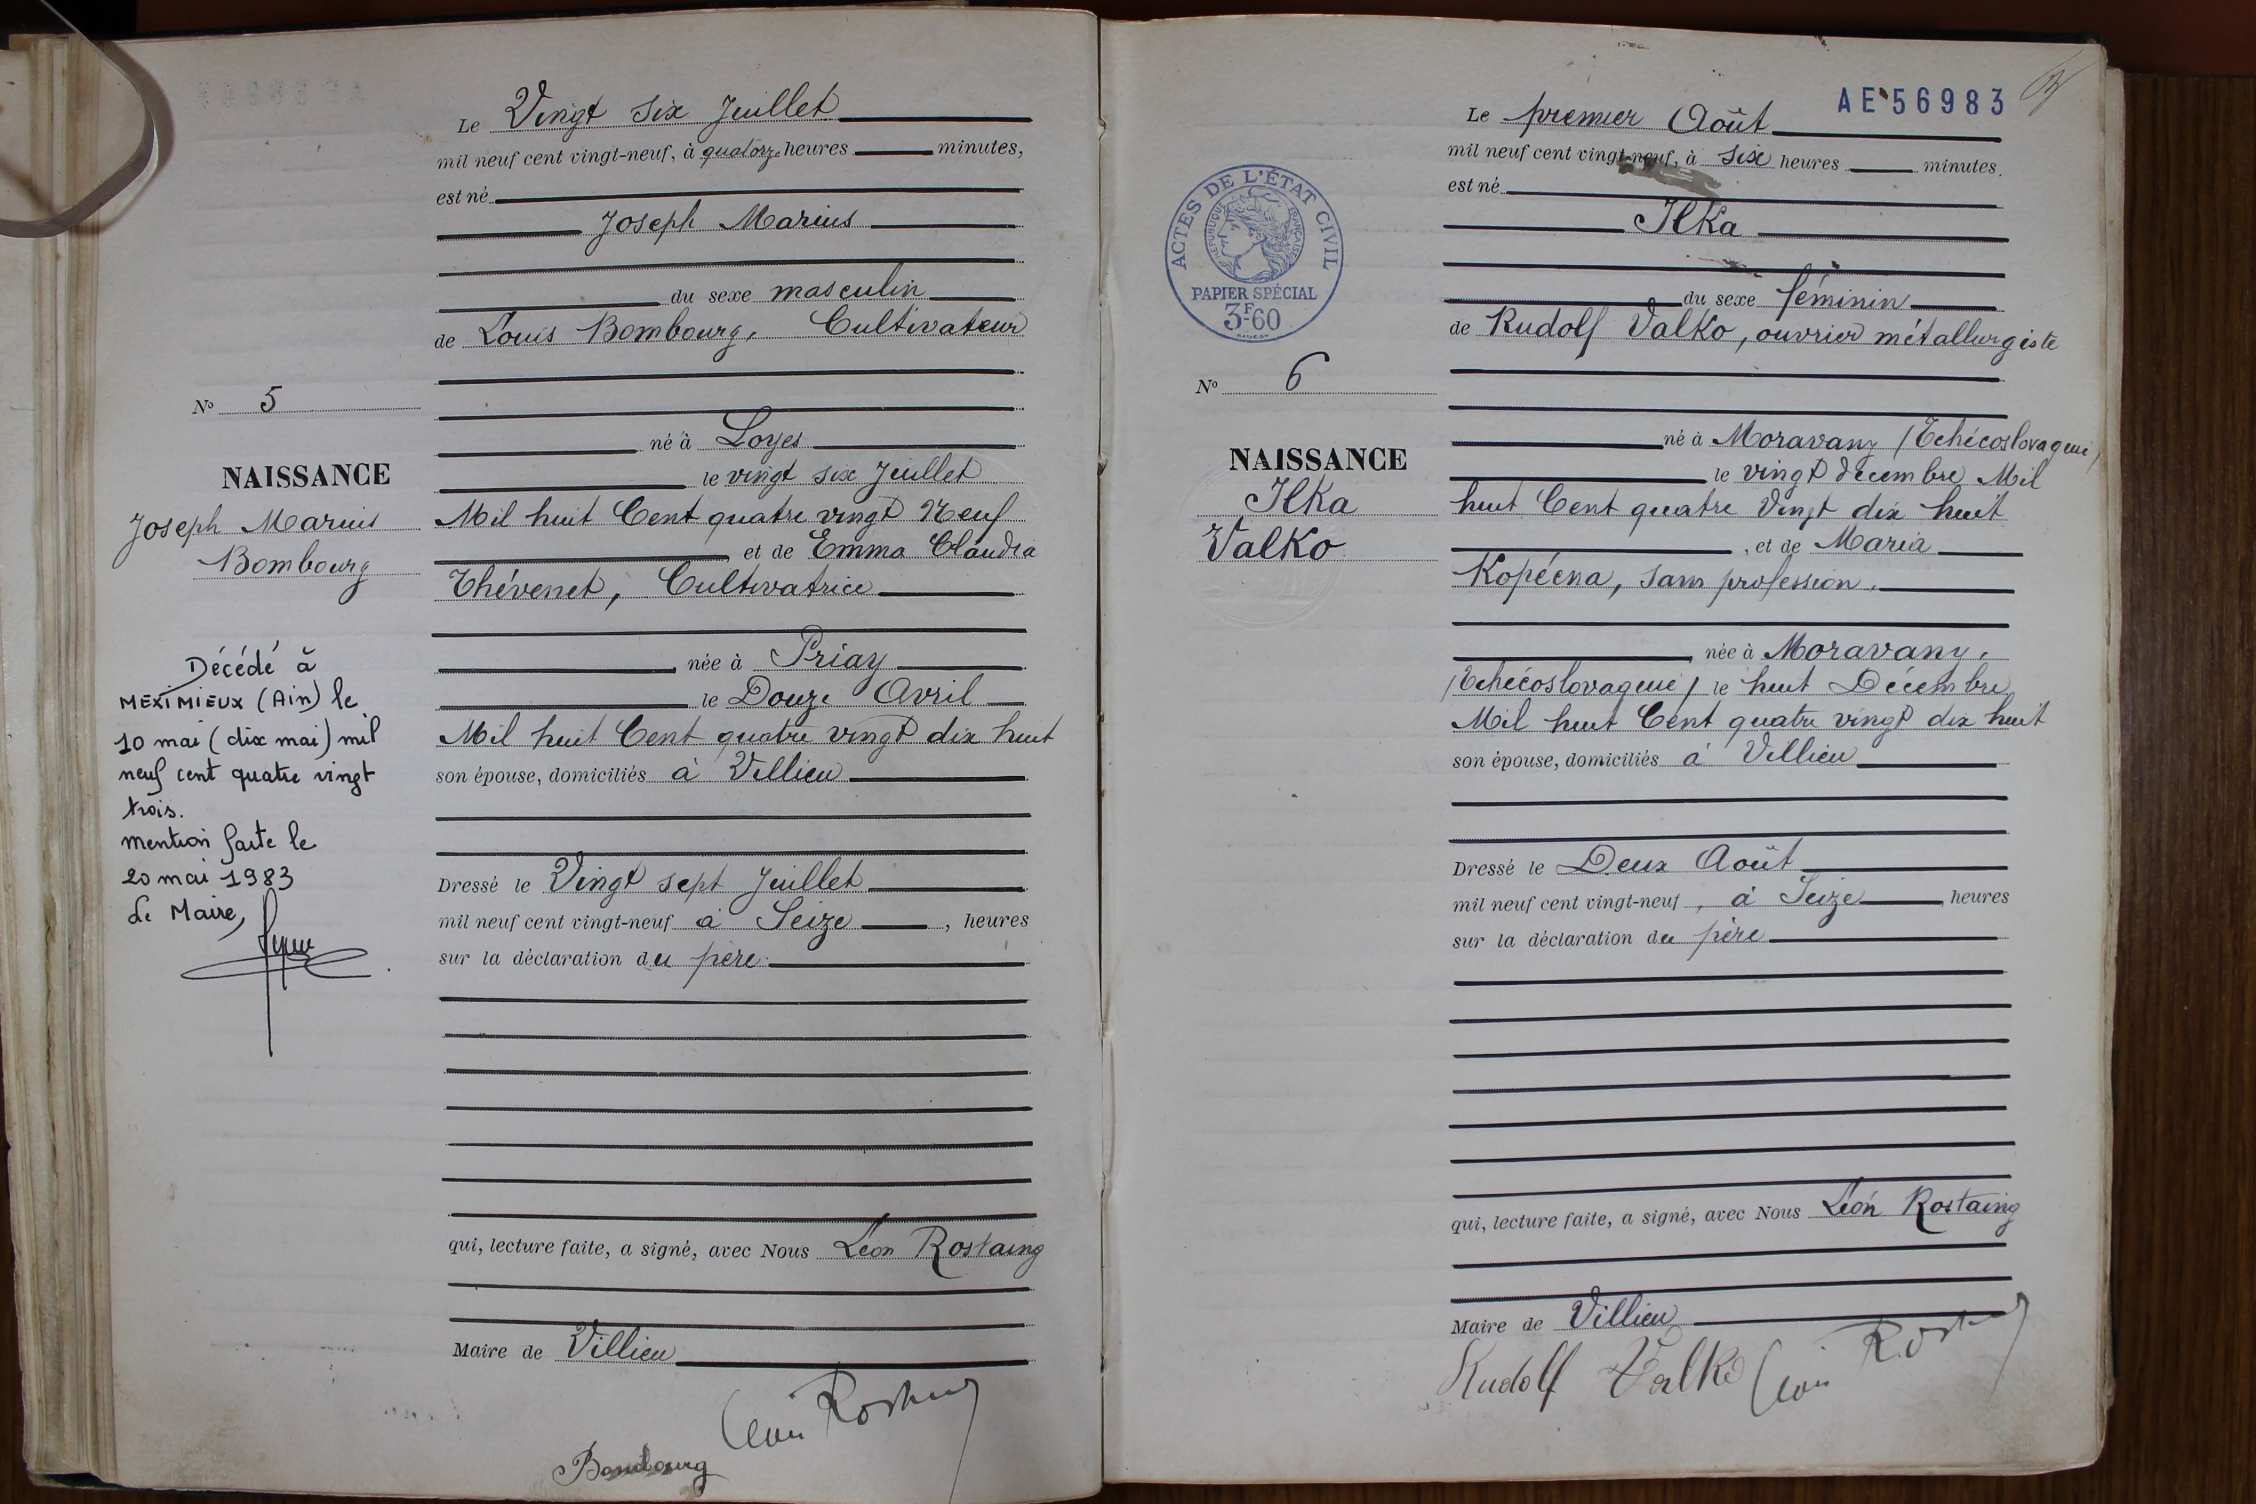 Le Vingt six Juillet
mil neuf cent vingt-neuf, à quatorze heures minutes,
est né
Joseph Marius
du sexe masculin
de Louis Bombourg, Cultivateur
né à Loyes
le vingt six Juillet
Mil huit Cent quatre vingt Neuf
et de Emma Claudia
Thévenet, Cultivatrice
née à Priay
le Douze Avril
Mil huit Cent quatre vingt dix huit
son épouse, domiciliés à Villieu
Dressé le Vingt sept Juillet
mil neuf cent vingt-neuf à Seize, heures
sur la déclaration du père
qui, lecture faite, a signé, avec Nous Léon Rostaing
Maire de Villieu
Bombourg
Léon Rostaing
No 5
NAISSANCE
Joseph Marius
Bombourg
Décédé à
MEXIMIEUX (Ain) le
10 mai (dix mai) mil
neuf cent quatre vingt
trois.
mention faite le
20 mai 1983
Le Maire,
AE 56983
ACTES DE L'ÉTAT CIVIL
RÉPUBLIQUE FRANÇAISE
PAPIER SPÉCIAL
3F60
No 6
NAISSANCE
Ilka
Valko
Le premier Août
mil neuf cent vingt-neuf, à six heures minutes.
est né
Ilka
du sexe féminin
de Rudolf Valko, ouvrier métallurgiste
né à Moravany (Tchécoslovaquie)
le vingt décembre Mil
huit Cent quatre Vingt dix huit
, et de Maria
Kopécna, sans profession.
née à Moravany,
(Tchécoslovaquie) le huit Décembre
Mil huit Cent quatre vingt dix huit
son épouse, domiciliés à Villieu
Dressé le Deux Août
mil neuf cent vingt-neuf, à Seize heures
sur la déclaration du père
qui, lecture faite, a signé, avec Nous Léon Rostaing
Maire de Villieu
Rudolf Valko Léon Rostaing